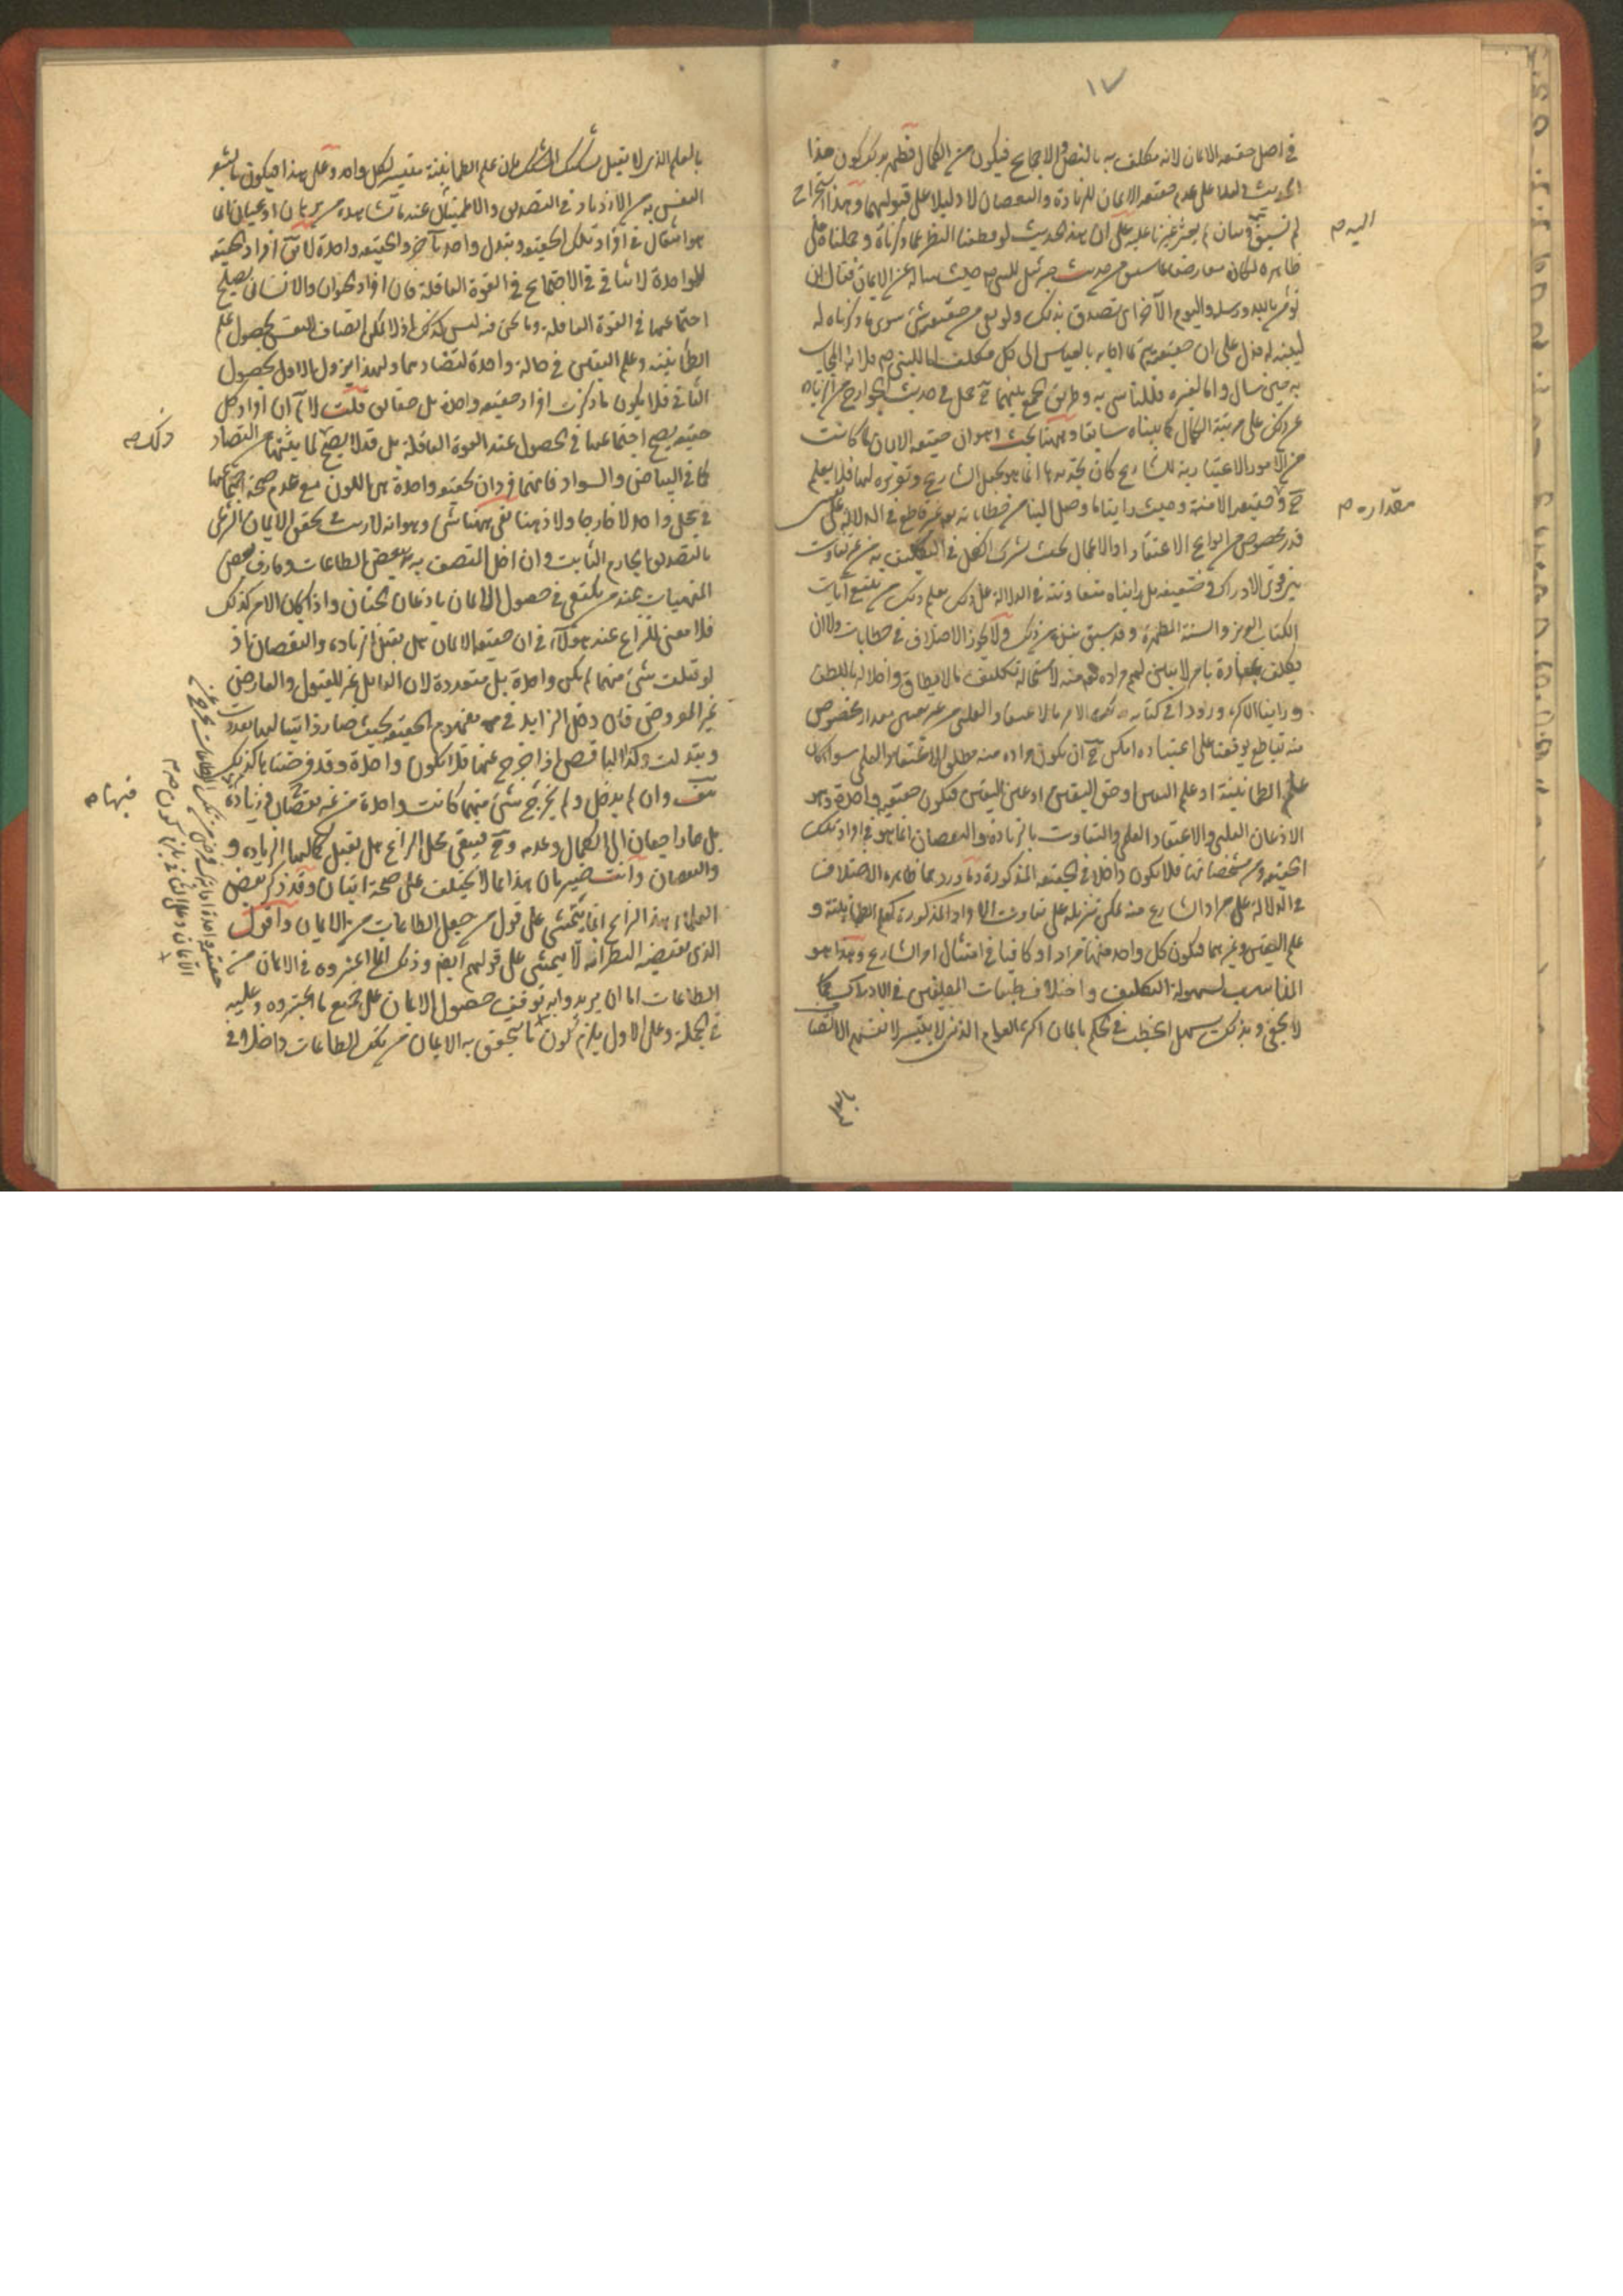 ١٧
في اصل حقيقة الايمان لانه مكلف به بالنص والاجماع فيكون من الكمال فظهر بذلك كون هذا
الحديث دليلا على عدم حقيقة الايمان للزيادة والنقصان لا دليلا على قبولهما وهذا استخراج
لم نسبق اليه
ظاهره لكان معارضا بما سبق من حديث جبرئيل للنبي ص حيث سأله عن الايمان فقال ان
تؤمن بالله ورسله واليوم الآخر اي تصدق بذلك ولو بقي من حقيقته شئ سوى ما ذكرناه له
لبينه له فدل على ان حقيقته تتم بما اجابه بالقياس الى كل مكلف اما للنبي ص فلانه المجاب
به حين سأل واما لغيره فللتأسي به وطريق الجمع بينهما ح حمل ما في حديث الجوارح من الزيادة
عن ذلك على مرتبة الكمال كما بيناه سابقا وههنا بحث وهو ان حقيقة الايمان لما كانت
من الامور الاعتبارية للشارع كان تحديدها انما هو بجعل الشارع وتقريره لها فلا يعلم
ح حقيقته الا منه وحيث راينا ما وصل الينا من خطاباته غير قاطع في الدلالة على
قدر مخصوص من انواع الاعتقاد او الاعمال بحيث يشترك الكل في التكليف به من غير تفاوت
بين قوي الادراك وضعيفه بل رايناه متفاوتة في الدلالة على ذلك يعلم ذلك من تتبع آيات
الكتاب العزيز والسنة المطهرة وقد سبق نبذ من ذلك ولا يجوز الاختلاف في خطاباته ولا ان
يكلف عباده بامر لا يبين لهم مراده منه لاستحالة تكليف ما لا يطاق واخلاله باللطف
وراينا الاكثر ورودا في كتابه الامر بالاعتقاد القلبي من غير تعيين مقدار مخصوص
منه بقاطع يوقفنا على اعتباره امكن ح ان يكون مراده منه مطلق الاعتقاد العلمي سواء كان
علم الطمانينة او علم اليقين او حق اليقين او عين اليقين فيكون حقيقة واحدة وهو
الاذعان القلبي والاعتقاد العلمي والتفاوت بالزيادة والنقصان انما هو في افراد تلك
الحقيقة ومن مشخصاتها فلا يكون داخلا في الحقيقة المذكورة وما ورد مما ظاهره الاختلاف
في الدلالة على مراد الشارع منه يمكن تنزيله على تفاوت الافراد المذكورة كعلم الطمانينة و
علم اليقين وغيرهما فيكون كل واحد منهما مرادا وكافيا في امتثال امر الشارع وهذا هو
المناسب لسهولة التكليف واختلاف طبقات المكلفين في الادراك كما
لا يخفى وبذلك يسهل الخطب في الحكم بايمان اكثر العوام الذين لا يتيسر لانفسهم الاتصاف
بالعلم
اليه ص
مقداره ص
بالعلم الذي لا يقبل تشكيك المشكك فان علم الطمانينة متيسر لكل واحد وعلى هذا فيكون ما يشعر
النفس به من الازدياد في التصديق والاطمينان عند ما تشاهده من برهان او عيان انما
هو انتقال في افراد تلك الحقيقة وتبدل واحد بآخر والحقيقة واحدة لا يق افراد الحقيقة
الواحدة لا تنافي في الاجتماع في القوة العاقلة فان افراد الحيوان والانسان يصلح
اجتماعها في القوة العاقلة وما نحن فيه ليس كذلك اذ لا يمكن اتصاف النفس بحصول علم
الطمانينة وعلم اليقين في حالة واحدة لتضادهما ولهذا يزول الاول بحصول
الثاني فلا يكون ما ذكرت افراد حقيقة واحدة بل حقايق قلت لا نم ان افراد كل
حقيقة يصح اجتماعها في الحصول عند القوة العاقلة بل قد لا يصح ذلك لما بينهما من التضاد
كما في البياض والسواد فانهما فردان لحقيقة واحدة هي اللون مع عدم صحة اجتماعهما
في محل واحد لا خارجا ولا ذهنا بقي ههنا شئ وهو انه لا ريب في تحقق الايمان الشرعي
بالتصديق الجازم الثابت وان اخل المتصف به ببعض الطاعات وقارف بعض
المنهيات عند من يكتفي في حصول الايمان باذعان الجنان واذا كان الامر كذلك
فلا معنى للنزاع عند هؤلاء في ان حقيقة الايمان هل تقبل الزيادة والنقصان اذ
لو قبلت شئ منهما لم يكن واحدة بل متعددة لان القابل غير المقبول والعارض
غير المعروض فان دخل الزايد في مفهوم الحقيقة بحيث صار ذاتيا لها تعددت
وتبدلت وكذا الناقص اذا خرج عنها فلا يكون واحدة وقد فرضناها كذلك
هف وان لم يدخل ولم يخرج شئ منهما كانت واحدة من غير نقصان وزيادة فيها
بل هما راجعان الى الكمال وعدمه وح فيبقى محل النزاع هل يقبل كمالها الزيادة و
والنقصان وانت خبير بان هذا مما لا يختلف على صحته اثنان وقد ذكر بعض
العلماء ان هذا النزاع انما يتمشى على قول من جعل الطاعات من الايمان واقول
الذي يقتضيه النظر انه لا يتمشى على قولهم ايضا وذلك ان ما اعتبروه في الايمان من
الطاعات اما ان يريدوا به توقف حصول الايمان على جميع ما اعتبروه وعليه
في الجملة وعلى الاول يلزم كون ما يتحقق به الايمان من تلك الطاعات داخلا في
ذلك ص
فيها ص